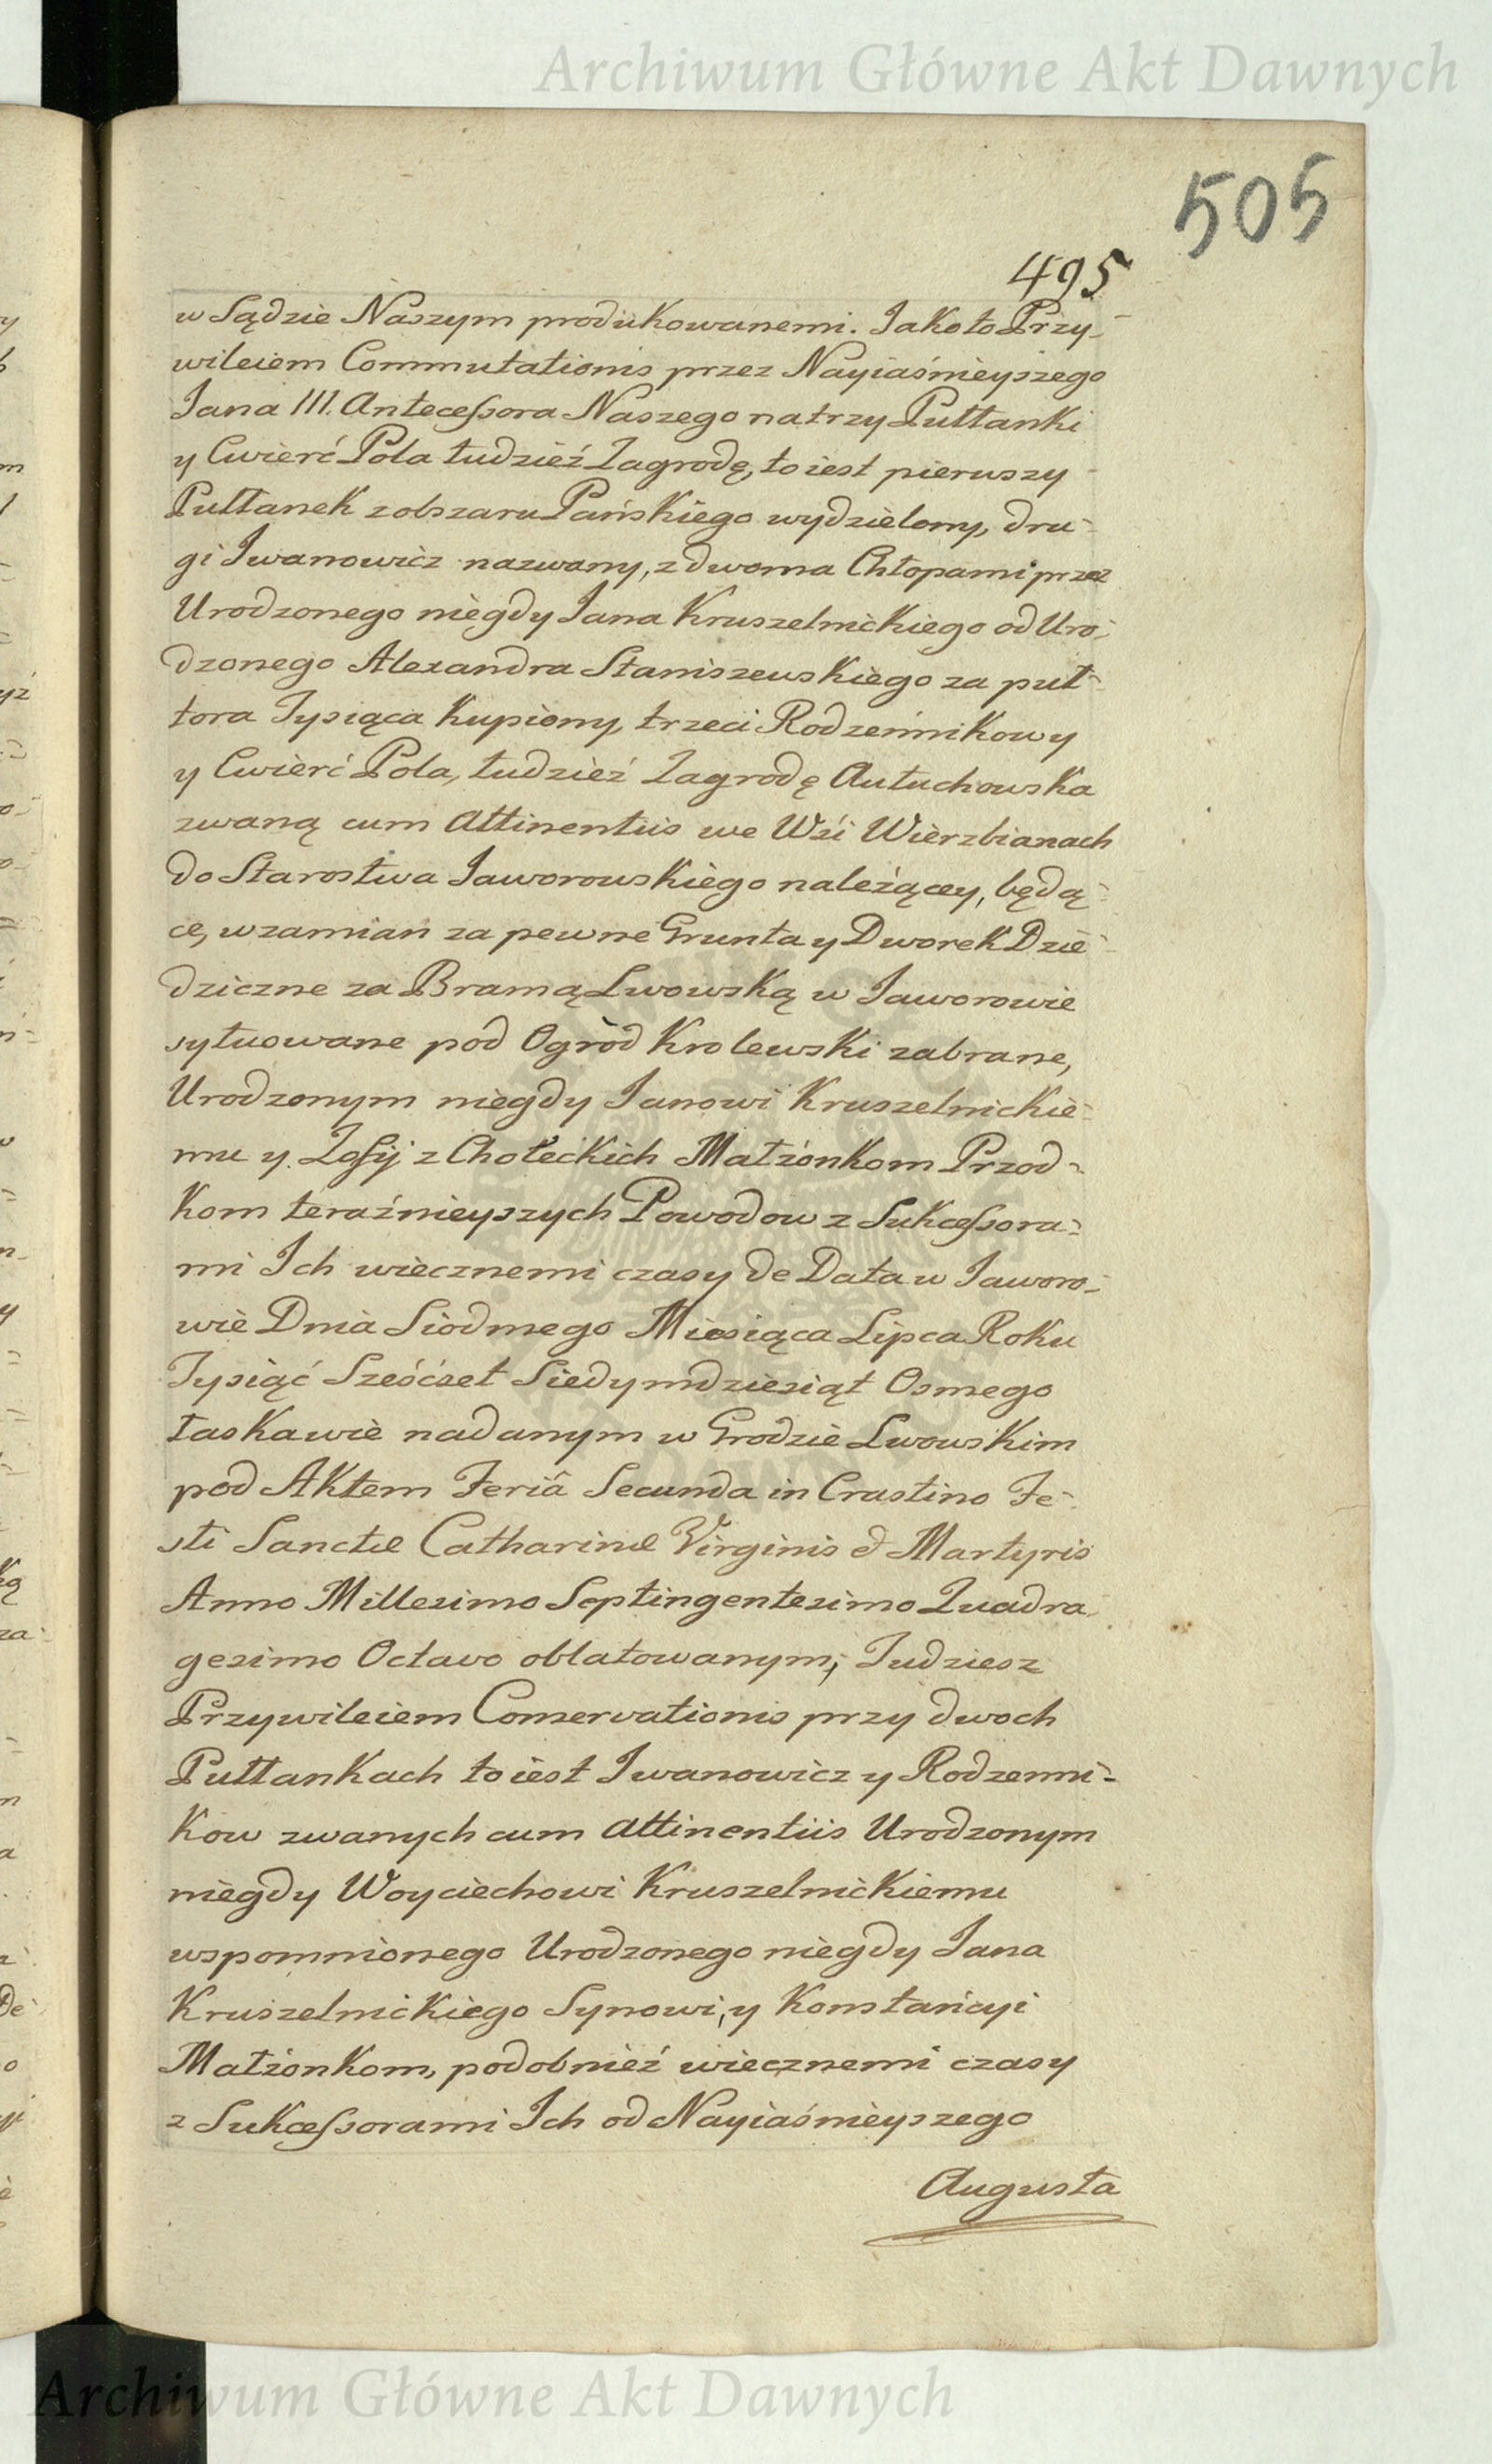 Archiwum Główne Akt Dawnych
505
495
w Sądzie Naszym produkowanemi. Jako to Przy-
wileiem Commutationis przez Nayiaśnieyszego
Jana III. Antecessora Naszego na trzy Pułłanki
y Cwierć Pola tudzież Zagrodę, to iest pierwszy
Pułłanek z obszaru Pańskiego wydzielony, dru-
gi Iwanowicz nazwany, z dwoma Chłopami przez
Urodzonego niegdy Jana Kruszelnickiego od Uro-
dzonego Alexandra Staniszewskiego za puł-
tora Tysiąca kupiony, trzeci Rodzeńnikowy
y Cwierć Pola, tudzież Zagrodę Autuchowska
zwaną cum Attinentiis we Wśi Wierzbianach
do Starostwa Jaworowskiego należącey, będą-
ce, w zamian za pewne Grunta y Dworek Dzie-
dziczne za Bramą Lwowską w Jaworowie
sytuowane pod Ogròd Krolewski zabrane,
Urodzonym niegdy Janowi Kruszelnickie-
mu y Zofij z Chołeckich Małżonkom Przod-
kom teraźnieyszych Powodow z Sukcessora-
mi Ich wiecznemi czasy de Data w Jaworo-
wie Dnia Siodmego Miesiąca Lipca Roku
Tysiąć Sześćset Siedymdziesiąt Osmego
łaskawie nadanym w Grodzie Lwowskim
pod Aktem Feriâ Secunda in Crastino Fe-
sti Sanctæ Catharinæ Virginis & Martyris
Anno Millesimo Septingentesimo Quadra-
gesimo Octavo oblatowanym; Tudziesz
Przywileiem Conservationis przy dwoch
Pułłankach to iest Iwanowicz y Rodzenni-
kow zwanych cum attinentiis Urodzonym
niegdy Woyciechowi Kruszelnickiemu
wspomnionego Urodzonego niegdy Jana
Kruszelnickiego Synowi, y Konstańcyi
Małżonkom, podobnież wiecznemi czasy
z Sukcessorami Ich od Nayiaśnieyszego
Augusta
Archiwum Główne Akt Dawnych